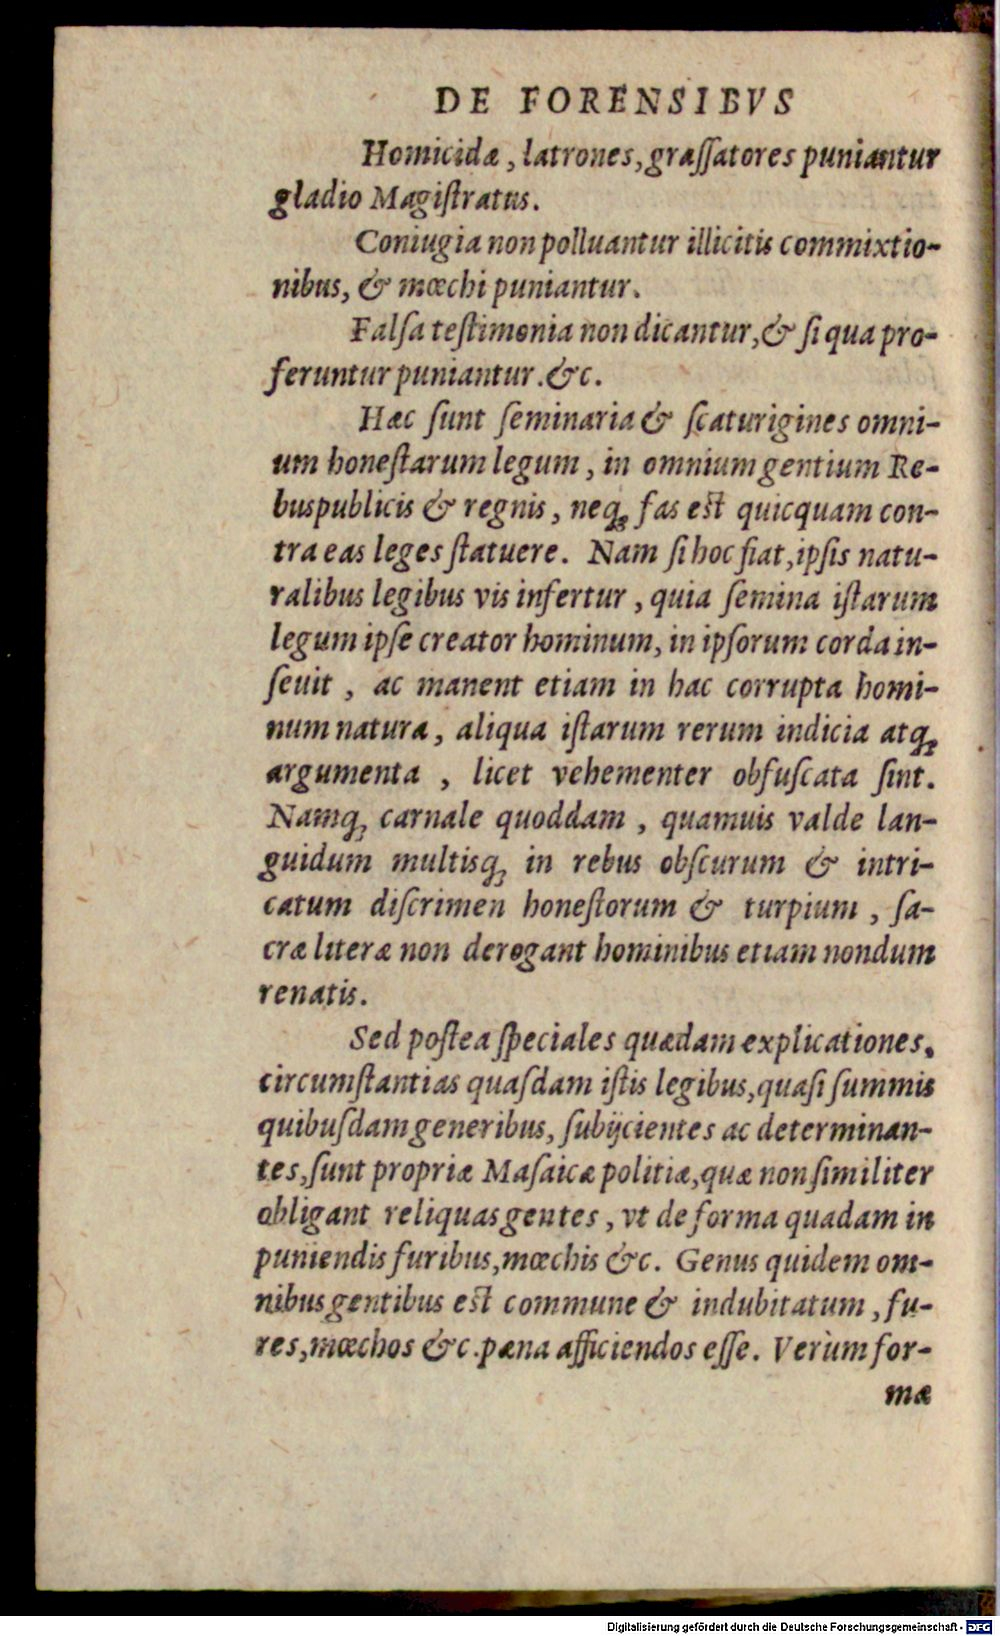 DE FORENSIBVS
Homicidæ, latrones, graſſatores puniantur
gladio Magiſtratus.
Coniugia non polluantur illicitis commixtio-
nibus, & mœchi puniantur.
Falſa teſtimonia non dicantur, & ſi qua pro-
feruntur puniantur. &c.
Hæc ſunt ſeminaria & ſcaturigines omni-
um honeſtarum legum, in omnium gentium Re-
buspublicis & regnis, neqꝫ fas eſt quicquam con-
tra eas leges ſtatuere. Nam ſi hoc fiat, ipſis natu-
ralibus legibus vis infertur, quia ſemina iſtarum
legum ipſe creator hominum, in ipſorum corda in-
ſeuit, ac manent etiam in hac corrupta homi-
num natura, aliqua iſtarum rerum indicia atqꝫ
argumenta, licet vehementer obfuſcata ſint.
Namqꝫ carnale quoddam, quamuis valde lan-
guidum multisqꝫ in rebus obſcurum & intri-
catum diſcrimen honeſtorum & turpium, ſa-
cræ literæ non derogant hominibus etiam nondum
renatis.
Sed poſtea ſpeciales quædam explicationes,
circumſtantias quaſdam iſtis legibus, quaſi ſummis
quibuſdam generibus, ſubijcientes ac determinan-
tes, ſunt propriæ Maſaicæ politiæ, quæ non ſimiliter
obligant reliquas gentes, vt de forma quadam in
puniendis furibus, mœchis &c. Genus quidem om-
nibus gentibus eſt commune & indubitatum, fu-
res, mœchos &c. pæna afficiendos eſſe. Verùm for-
mæ
Digitalisierung gefördert durch die Deutsche Forschungsgemeinschaft - DFG